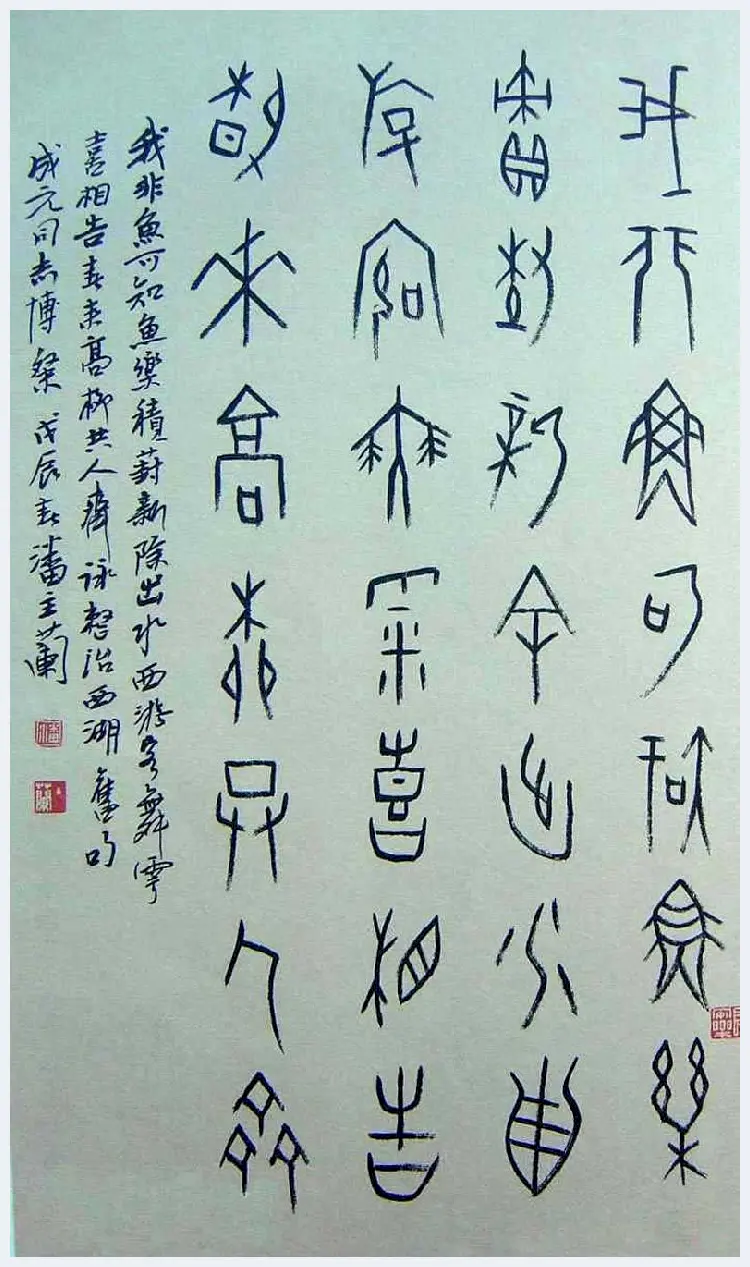 我非魚可知魚樂
積葑新除出水西
游客舞雩喜相告
春來高柳共人齊
我非魚可知魚樂積葑新除出水西游客舞雩
喜相告春來高柳共人齊詠整治西湖舊句
成元同志博粲戊辰春潘主蘭
潘
蘭